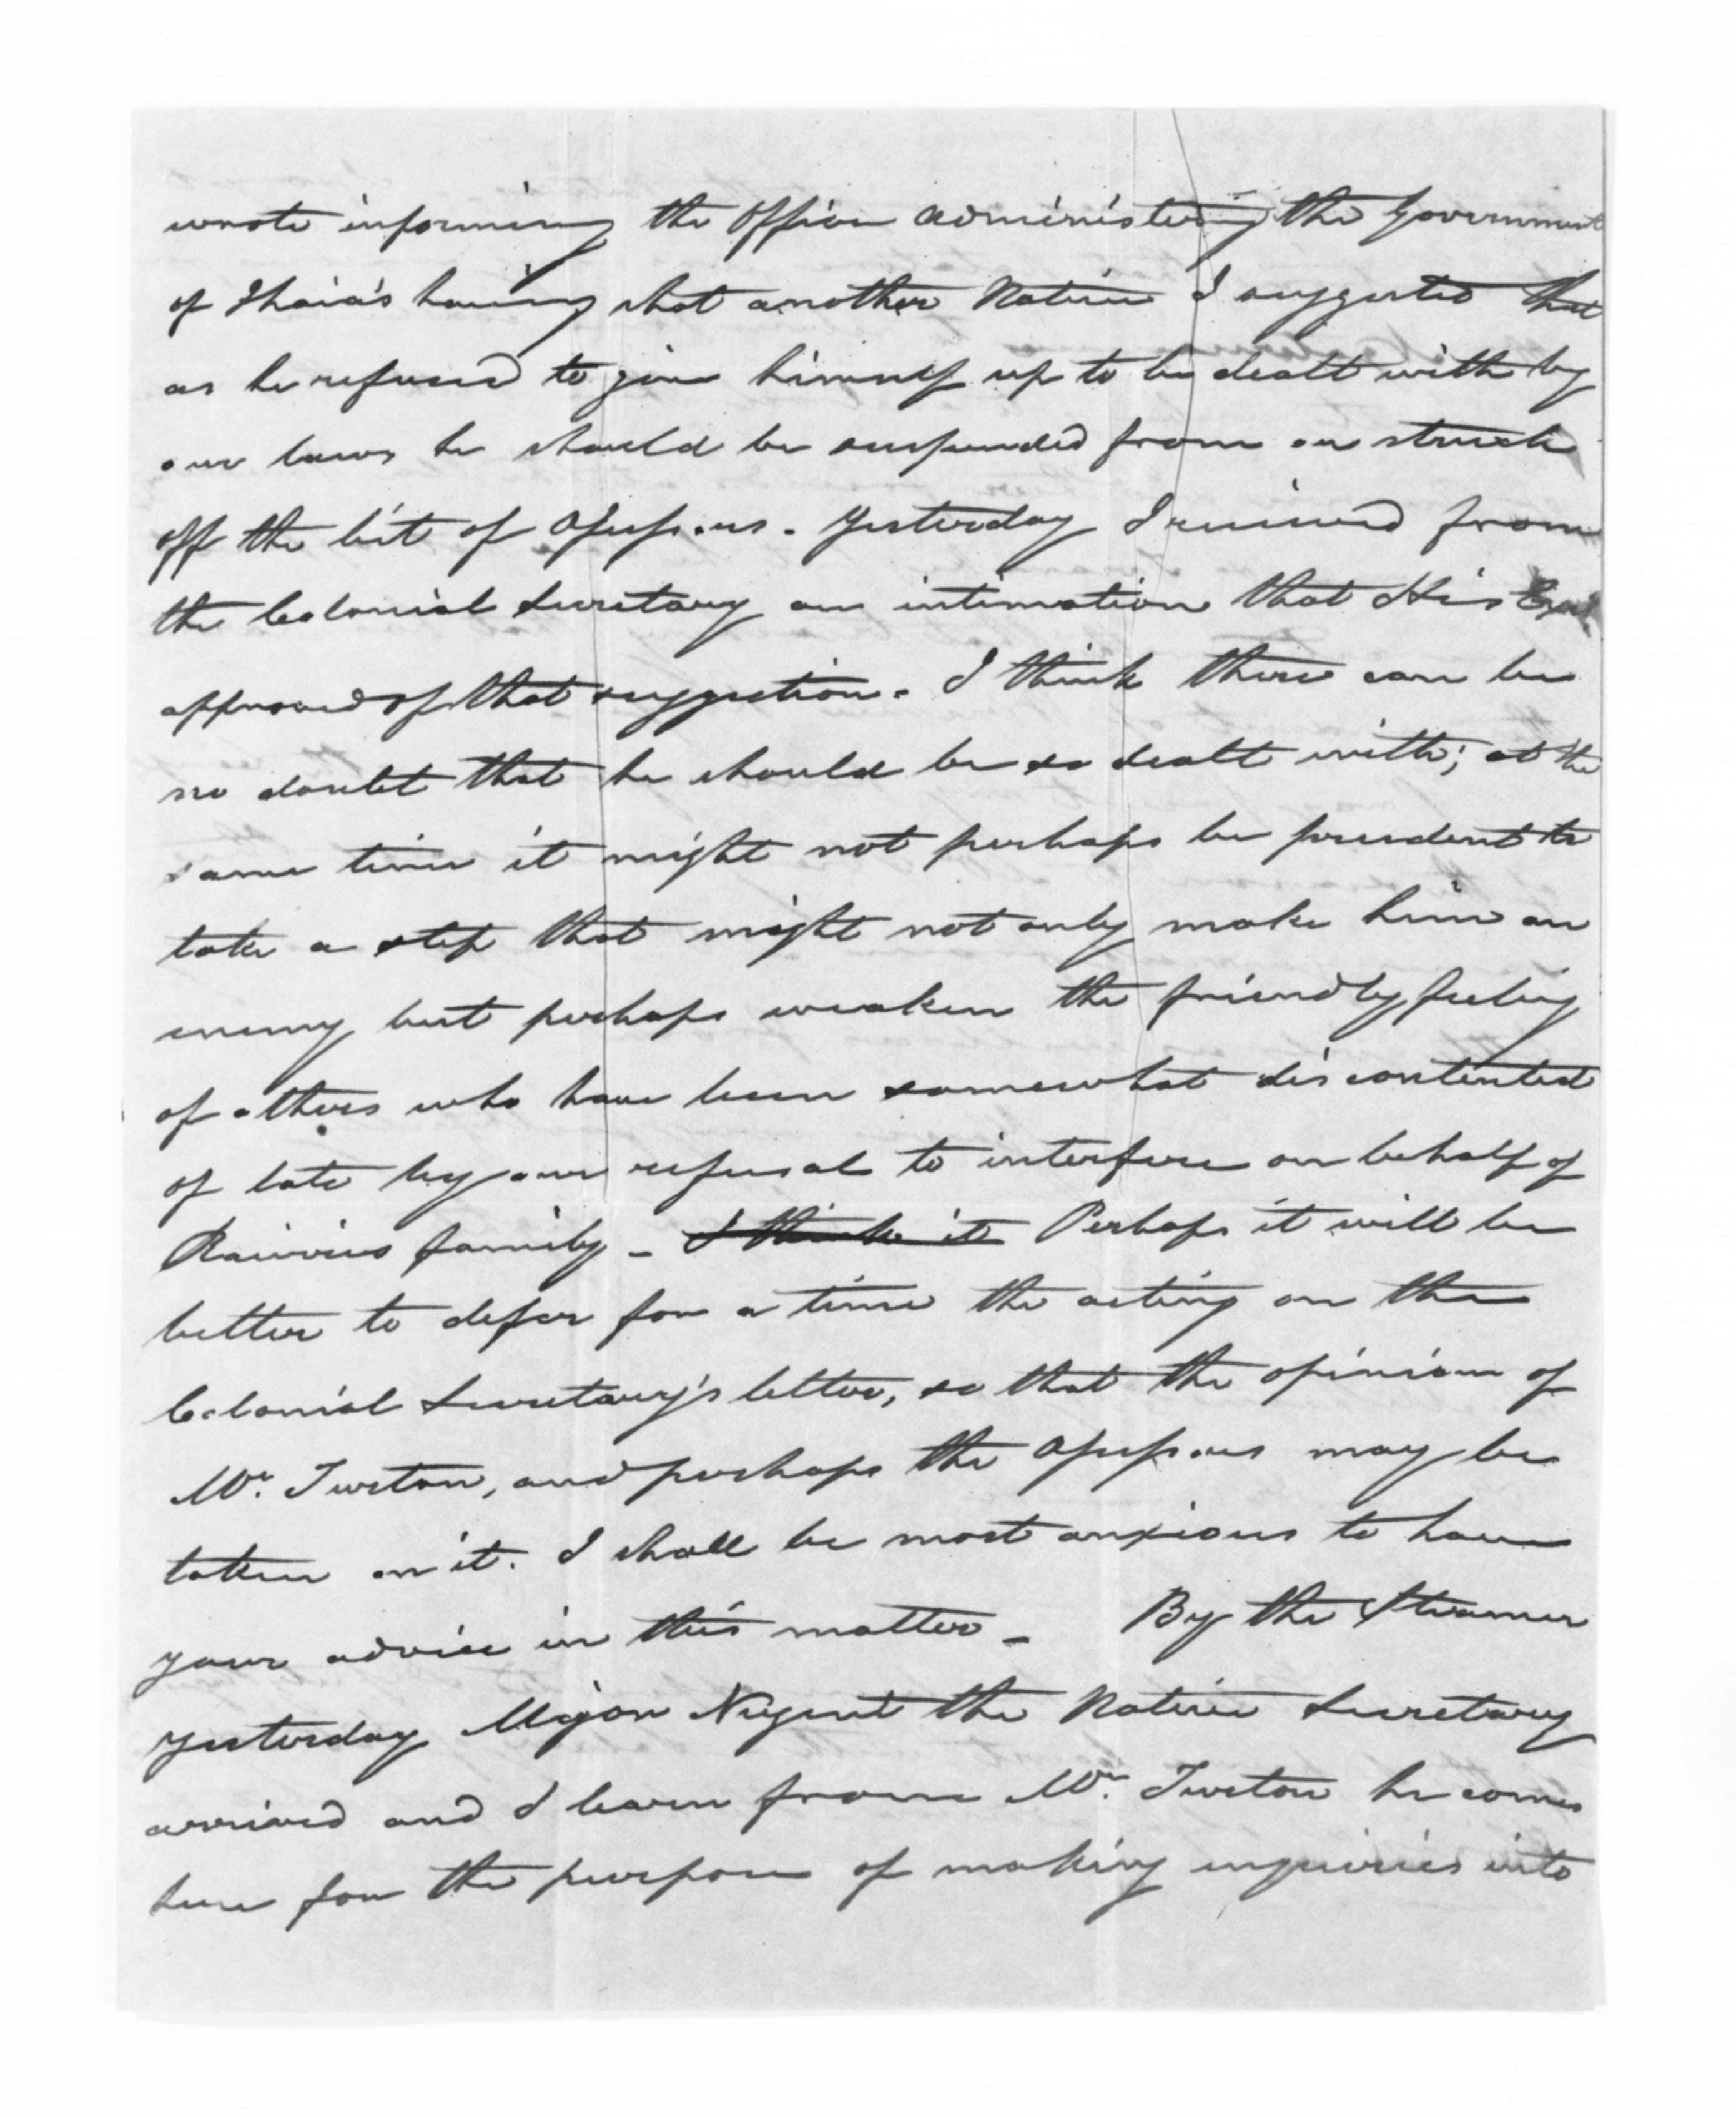 wrote informing the Officer administering the Government
of Ihaia's having shot another Native I suggested that
as he refused to give himself up to be dealt with by
our laws he should be suspended from or struck
off the list of Assessors. Yesterday I received from
the Colonial Secretary an intimation that His Excy.
approved of that suggestion. I think there can be
no doubt that he should be so dealt with; at the
same time it might not perhaps be prudent to
take a step that might not only make him an
enemy but perhaps weaken the friendly feeling
of others who have been somewhat discontented
of late by our refusal to interfere on behalf of
Rawiris family - I think it Perhaps it will be
better to defer for a time the acting on the
Colonial Secretary's letter, so that the opinion of
Mr. Turton, and perhaps the Assessors may be
taken on it. I shall be most anxious to have
your advice in this matter - By the Steamer
yesterday Major Nugent the Native Secretary
arrived and I learn from Mr. Turton he comes
here for the purpose of making inquiries into